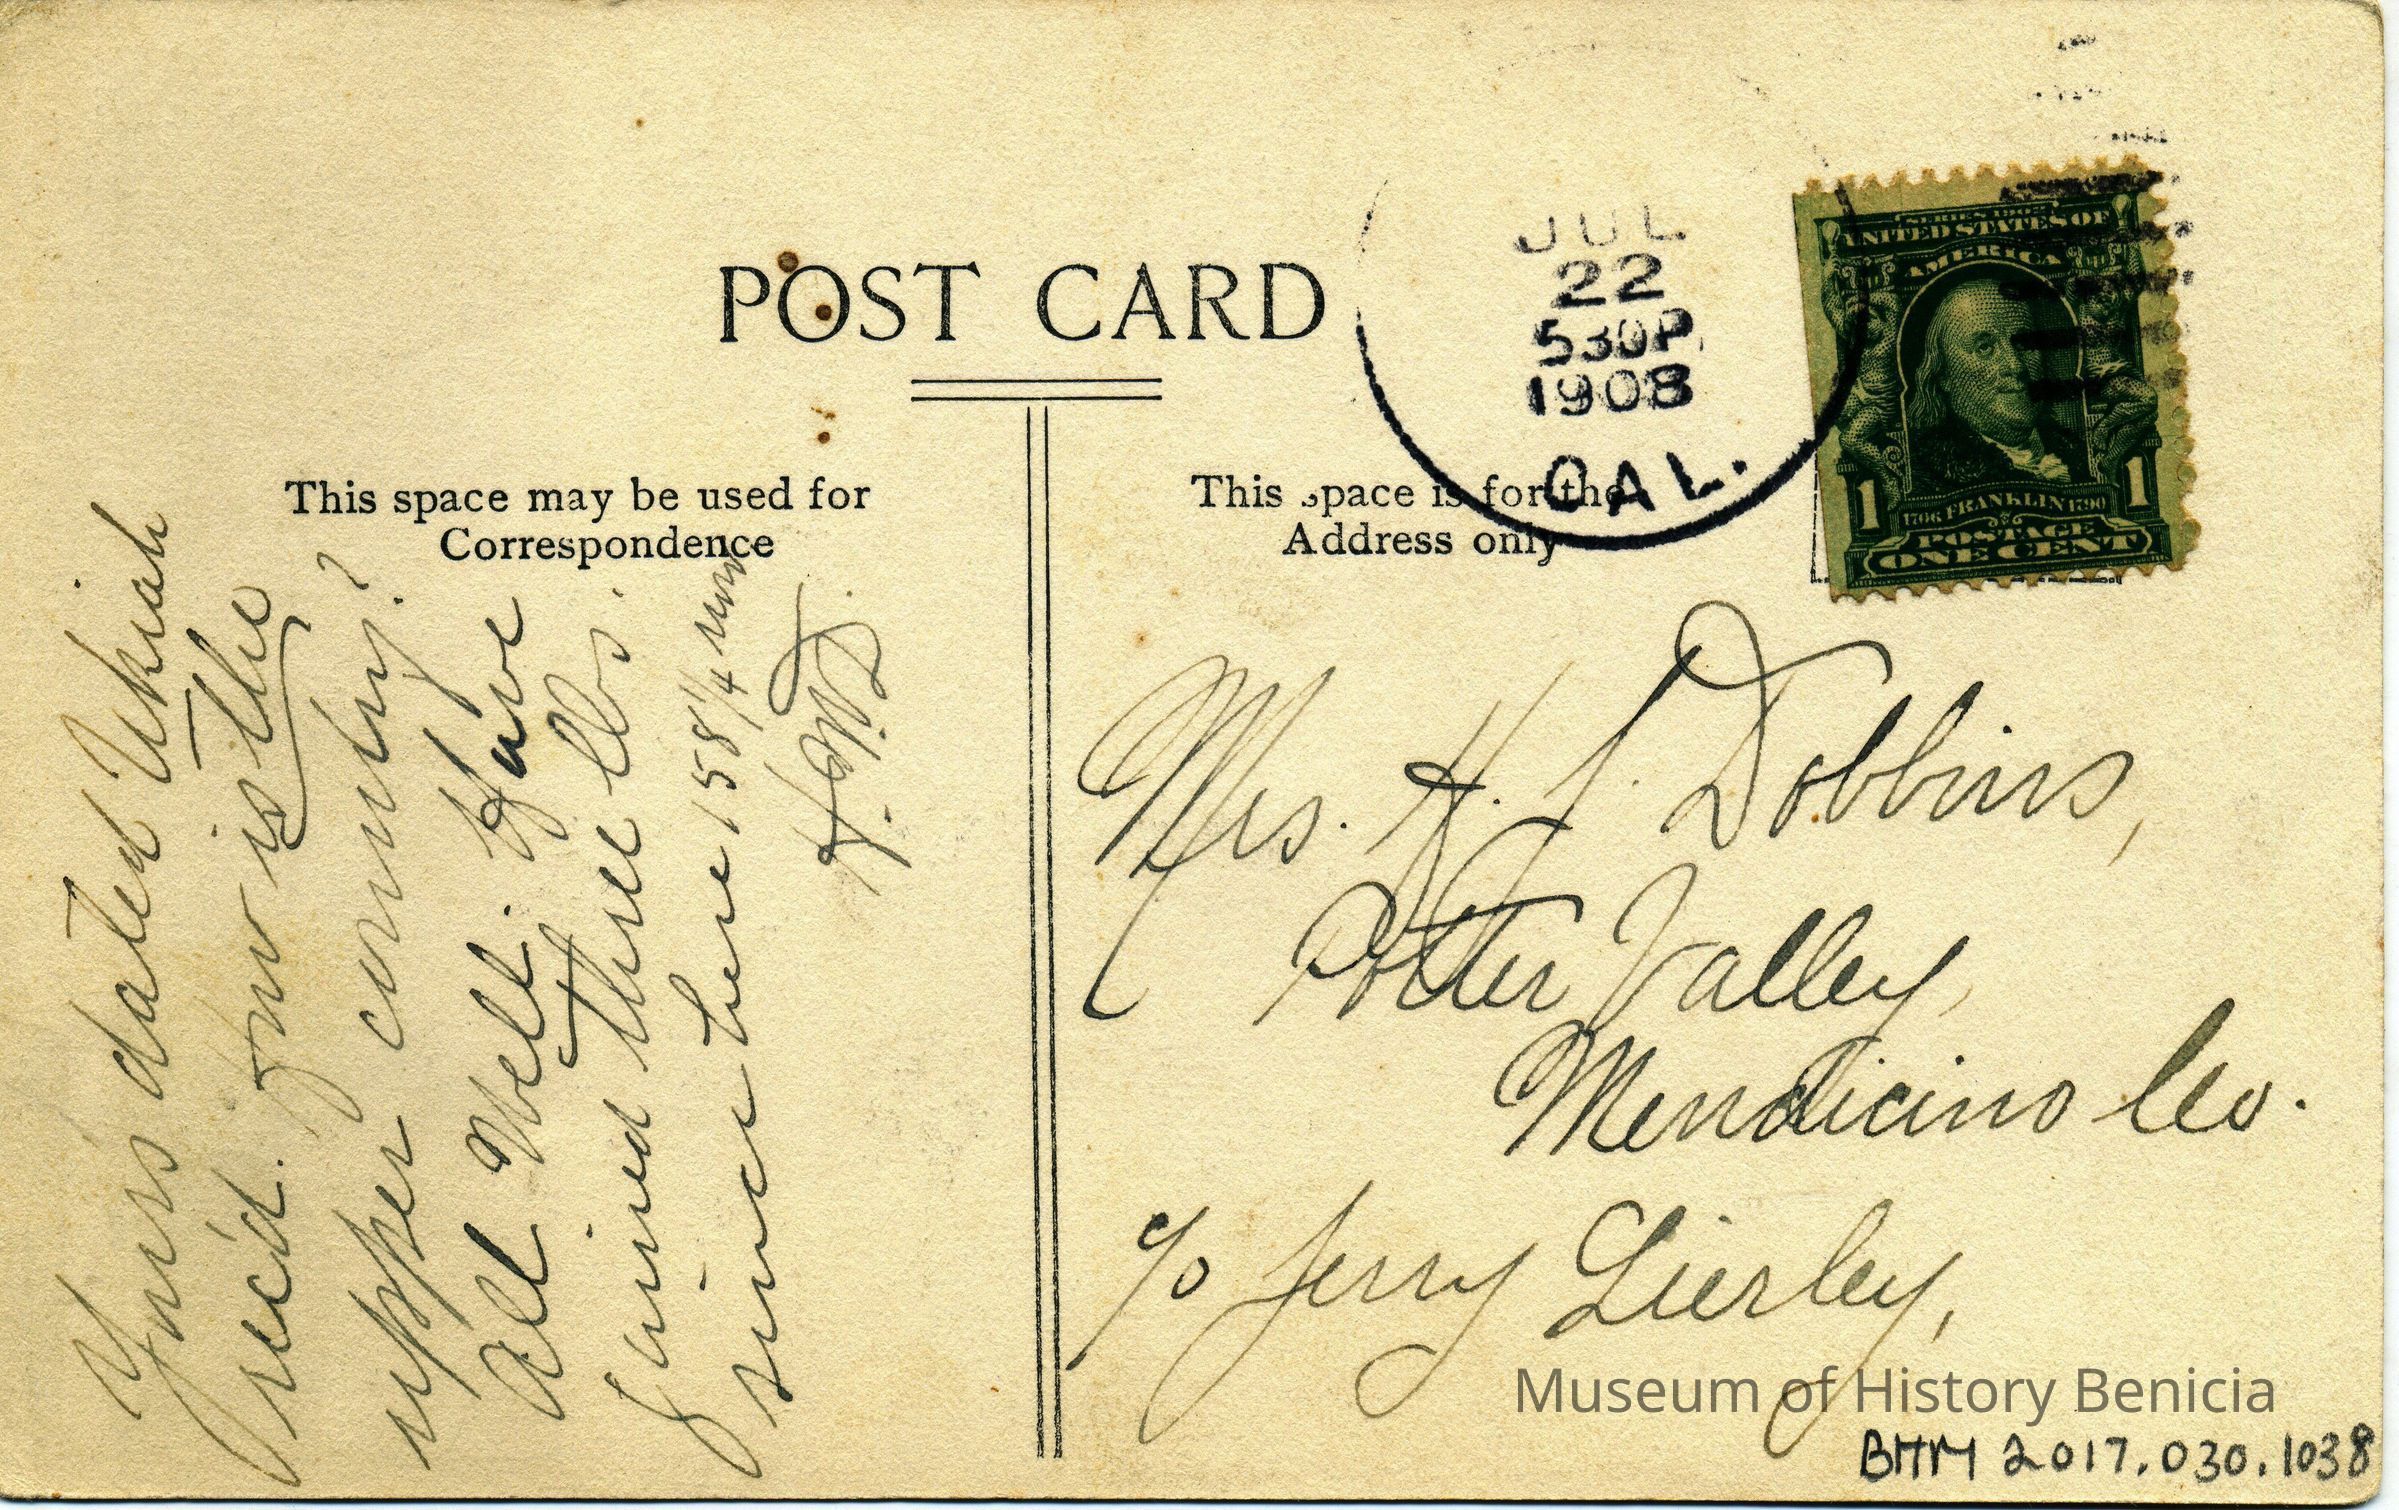 POST CARD
This space may be used for
Correspondence
This space is for the
Address only
JUL
22
530P
1908
CAL.
SERIES 1902
UNITED STATES OF
AMERICA
1 1
1706 FRANKLIN 1790
POSTAGE
ONE CENT
Yours dated Ukiah
rec'd. How is the
upper country?
All Well. Have
gained three lbs.
since here 158 1/4 now
H.W.D.
Mrs. H. J. Dobbins,
Potter Valley,
Mendicino Co.
c/o Jerry Lierley,
Museum of History Benicia
BHM 2017.030.1038